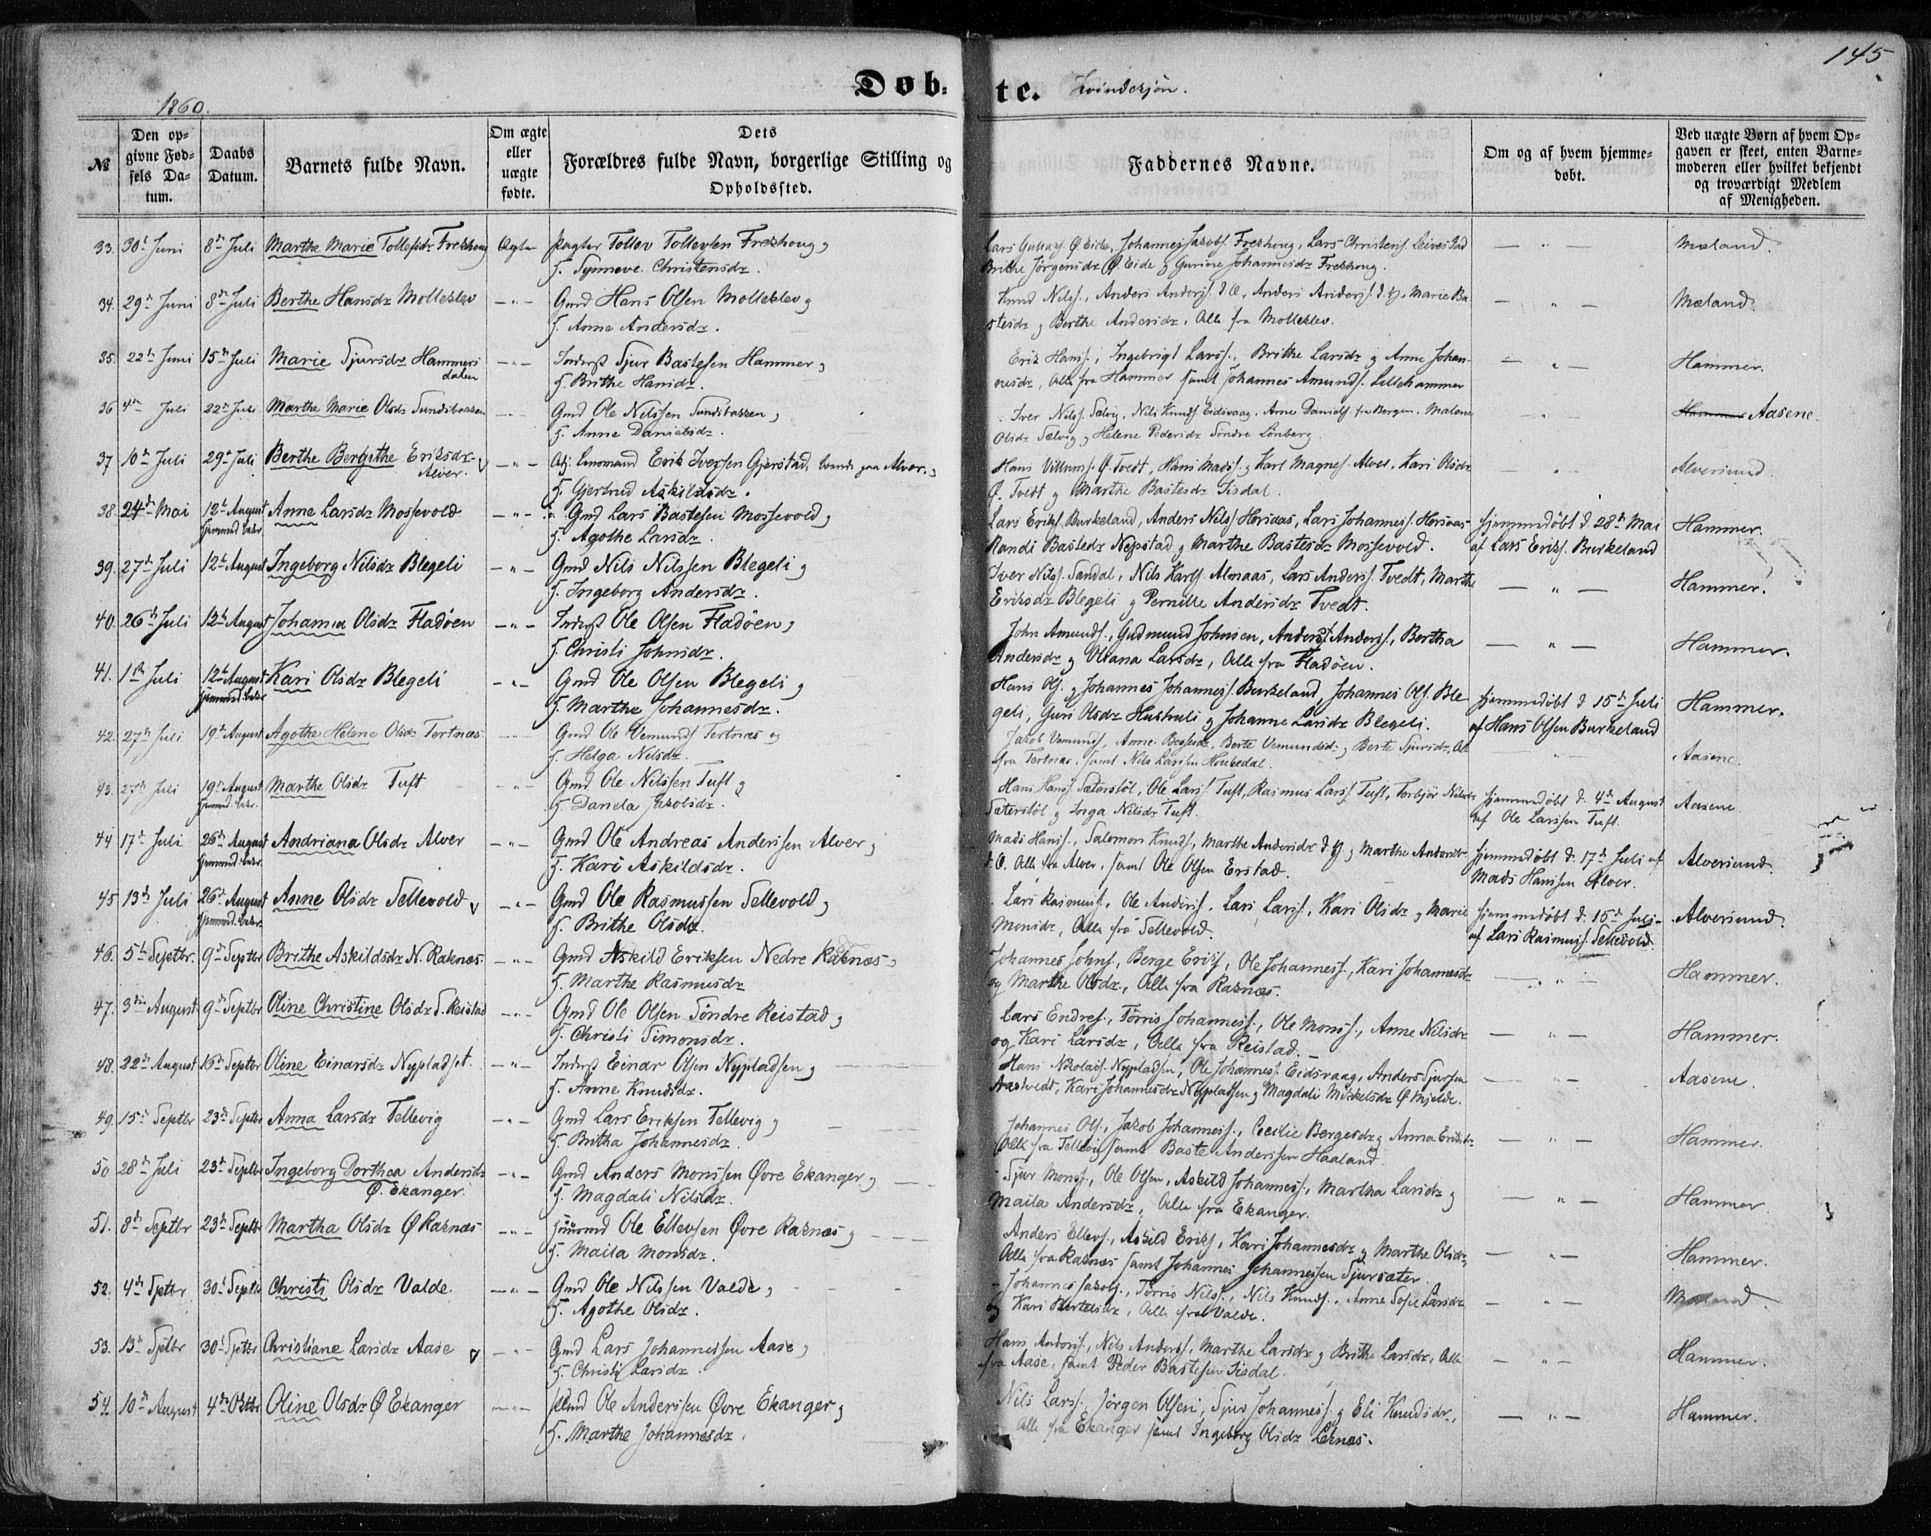 145
Døb-te. Kvindekjøn.
1860.
№
Den op-
givne Fød-
sels Da-
tum.
Daabs
Datum.
Barnets fulde Navn.
Om ægte
eller
uægte
fødte.
Dets
Forældres fulde Navn, borgerlige Stilling og
Opholdssted.
Faddernes Navne.
Om og af hvem hjemme-
døbt.
Ved uægte Børn af hvem Op-
gaven er skeet, enten Barne-
moderen eller hvilket bekjendt
og troværdigt Medlem
af Menigheden.
33. 30t Juni 8de Juli Marthe Marie Tollefsdr Frekhoug Ægte Pagter Tollev Tollevsen Frekhoug og Lars Gullags. Ø. Eide, Johannes Jakobs. Frekhoug, Lars Christens. — " — Mæland.
H. Synneve Christensdr. Brithe Jørgensdr Ø. Eide og Gurine Johannesdr Frekhoug.
34. 29de Juni 8de Juli Berthe Hansdr Molleklev — " — Gmd Hans Olsen Molleklev og Knud Nilss., Anders Anders. d. Æ., Anders Anders. d. Y., Marie Ba- — " — Mæland.
H. Anne Andersdr. stesdr og Berthe Andersdr, Alle fra Molleklev.
35. 22de Juni 15de Juli Marie Sjursdr Hammers- — " — Inderst Sjur Bastesen Hammer og Erik Hans., Ingebrigt Lars., Brithe Larsdr og Anne Johan- — " — Hammer.
dalen H. Brithe Hansdr. nesdr, Alle fra Hammer samt Johannes Amunds. Lillehammer
36 4de Juli 22de Juli Marthe Marie Olsdr Sundsbakken — " — Gmd Ole Nilssen Sundsbakken og Iver Nilss. Sælvig, Nils Knuds. Eidsvaag, Arne Daniels. fra Bergen, Malene — " — Aasene.
H. Anne Danielsdr. Olsdr Sælvig og Helene Pedersdr Søndre Lønberg.
37 10de Juli 29de Juli Berthe Bergithe Eriksdr — " — Afsk. Lensmand Erik Iversen Gjerstad, boende paa Alver, og Hans Villums. Ø. Tvedt, Hans Mads. og Karl Magnes. Alver, Kari Olsdr — " — Alversund.
Alver. H. Gjertrud Askildsdr. Ø. Tvedt og Marthe Bastesdr Fisdal.
38. 24de Mai 12te August Anne Larsdr Mossevold — " — Gmd Lars Bastesen Mossevold og Lars Eriks. Burkeland, Anders Nilss. Horsaas, Lars Johanness. Horsaas, Hjemmedøbt d. 28de Mai Hammer.
hjemmed. bekr. H. Agothe Larsdr. Randi Bastesdr Nepstad og Marthe Bastesdr Mossevold. af Lars Eriks. Burkeland
39. 27de Juli 12te August Ingeborg Nilsdr Blegeli — " — Gmd Nils Nilssen Blegeli og Iver Nilss. Sandal, Nils Karls. Almaas, Lars Anders. Tvedt, Marthe — " — Hammer.
H. Ingeborg Andersdr. Eriksdr Blegeli og Pernille Andersdr Tvedt.
40. 26de Juli 12te August Johanna Olsdr Fladøen — " — Inderst Ole Olsen Fladøen og John Amunds., Gudmund Johnsen, Anders Anders., Bertha — " — Hammer.
H. Christi Johnsdr. Andersdr og Oliana Larsdr, Alle fra Fladøen.
41. 1ste Juli 12te August Kari Olsdr Blegeli — " — Gmd Ole Olsen Blegeli og Hans Ols. og Johannes Johanness. Burkeland, Johannes Ols. Ble- Hjemmedøbt d. 15de Juli Hammer.
hjemmed. bekr. H. Marthe Johannesdr. geli, Guri Olsdr Hushuli og Johanne Larsdr Blegeli. af Hans Olsen Burkeland
42. 27de Juli 19de August Agothe Helene Olsdr Tertnæs — " — Gmd Ole Vemunds. Tertnæs og Jakob Vemunds., Anne Bessesdr, Berte Vemundsdr og Berte Sjursdr, Al- — " — Aasene.
H. Helga Nilsdr. fra Tertnæs, samt Nils Larssen
43. 27de Juli 19de August Marthe Olsdr Tuft — Gmd Ole Nilssen Tuft og Hans Hans. Sæterstøl, Ole Lars. Tuft, Rasmus Lars. Tuft, Torbjør Nilsdr Hjemmedøbt d. 4de August Aasene
hjemmed. bekr. H. Danda Jakobsdr. Sæterstøl og Inga Nilsdr Tuft. af Ole Larssen Tuft.
44 17de Juli 26de August Andriana Olsdr Alver — " — Gmd Ole Andreas Anderssen Alver og Mads Hans., Salomon Knuds., Marthe Andersdr d. Y. og Marthe Andersdr Hjemmedøbt d. 17de Juli af Alversund.
hjemmed. bekr. H. Kari Askildsdr. d. Æ. Alle fra Alver, samt Ole Olsen Erstad. Mads Hanssen Alver.
45 13de Juli 26de August Anne Olsdr Tellevold — " — Gmd Ole Rasmussen Tellevold og Lars Rasmuss., Ole Anders., Lars Lars., Kari Olsdr og Marie Hjemmedøbt d. 15de Juli Alversund.
hjemmed. bekr. H. Brithe Olsdr. Monsdr, Alle fra Tellevold. af Lars Rasmuss. Tellevold
46. 5te Septbr. 9de Septbr Brithe Askildsdr N. Raknæs. — " — Gmd Askild Eriksen Nedre Raknæs og Johannes Johns., Berge Eriks., Ole Johanness., Kari Johannesdr — " — Hammer.
H. Marthe Rasmusdr og Marthe Olsdr, Alle fra Raknæs.
47. 3die August 9de Septbr Oline Christine Olsdr S. Reistad — " — Gmd Ole Olsen Søndre Reistad og Lars Endres., Tørris Johanness., Ole Monss., Anne Nilsdr — " — Hammer.
H. Christi Simonsdr. og Kari Larsdr, Alle fra Reistad.
48. 22de August 16de Septbr Oline Einarsdr Nypladset. — " — Inderst Einar Olsen Nypladsen og Hans Nikolais. Nypladsen, Ole Johanness. Eidsvaag, Anders Sjursen — " — Aasene.
H. Anne Knudsdr. Aastvedt, Kari Johannesdr Nypladsen og Magdali Mickelsdr Ø. Mjelde.
49. 15de Septbr 23de Septbr Anna Larsdr Tellevig — " — Gmd Lars Eriksen Tellevig og Johannes Ols., Jakob Johanness., Cecilie Bergesdr og Anna Eriksdr, — " — Hammer.
H. Britha Johannesdr. Alle fra Tellevig samt Baste Anderssen Haaland.
50 28de Juli 23de Septbr Ingeborg Dorthea Andersdr — " — Gmd Anders Monssen Øvre Ekanger og Sjur Monss., Ole Olsen, Askild Johanness., Martha Larsdr og — " — Hammer.
Ø. Ekanger. H. Magdali Nilsdr. Maila Andersdr, Alle fra Ekanger.
51. 8de Septbr 23de Septbr Martha Olsdr Ø Raknæs — " — Huusmd Ole Ellevsen Øvre Raknæs og Anders Ellevs., Askild Eriks., Kari Johannesdr og Marthe Olsdr, — " — Hammer.
H. Maila Monsdr. Alle fra Raknæs samt Johannes Johannessen Sjursæter.
52. 4de Septbr 30te Septbr Christi Olsdr Valde. — " — Gmd Ole Nilssen Valde og Johannes Jakobs., Tørris Nilss., Nils Knuds., Anne Sofie Larsdr — " — Mæland
H. Agothe Olsdr. og Kari Bertelsdr, Alle fra Valde.
53. 13de Septbr 30te Septbr Christiane Larsdr Aase — " — Gmd Lars Johannessen Aase og Hans Anders., Nils Anders., Marthe Larsdr og Brithe Larsdr, Alle — " — Hammer.
H. Christi Larsdr. fra Aase, samt Peder Bastesen Fisdal.
54. 10de August 4de Oktbr Oline Olsdr Ø Ekanger — " — Ole Anderssen Øvre Ekanger og Nils Lars., Jørgen Olsen, Sjur Johanness. og Eli Knudsdr, — " — Hammer.
H. Marthe Johannesdr. Alle fra Ekanger samt Ingeborg Olsdr Lernæs.